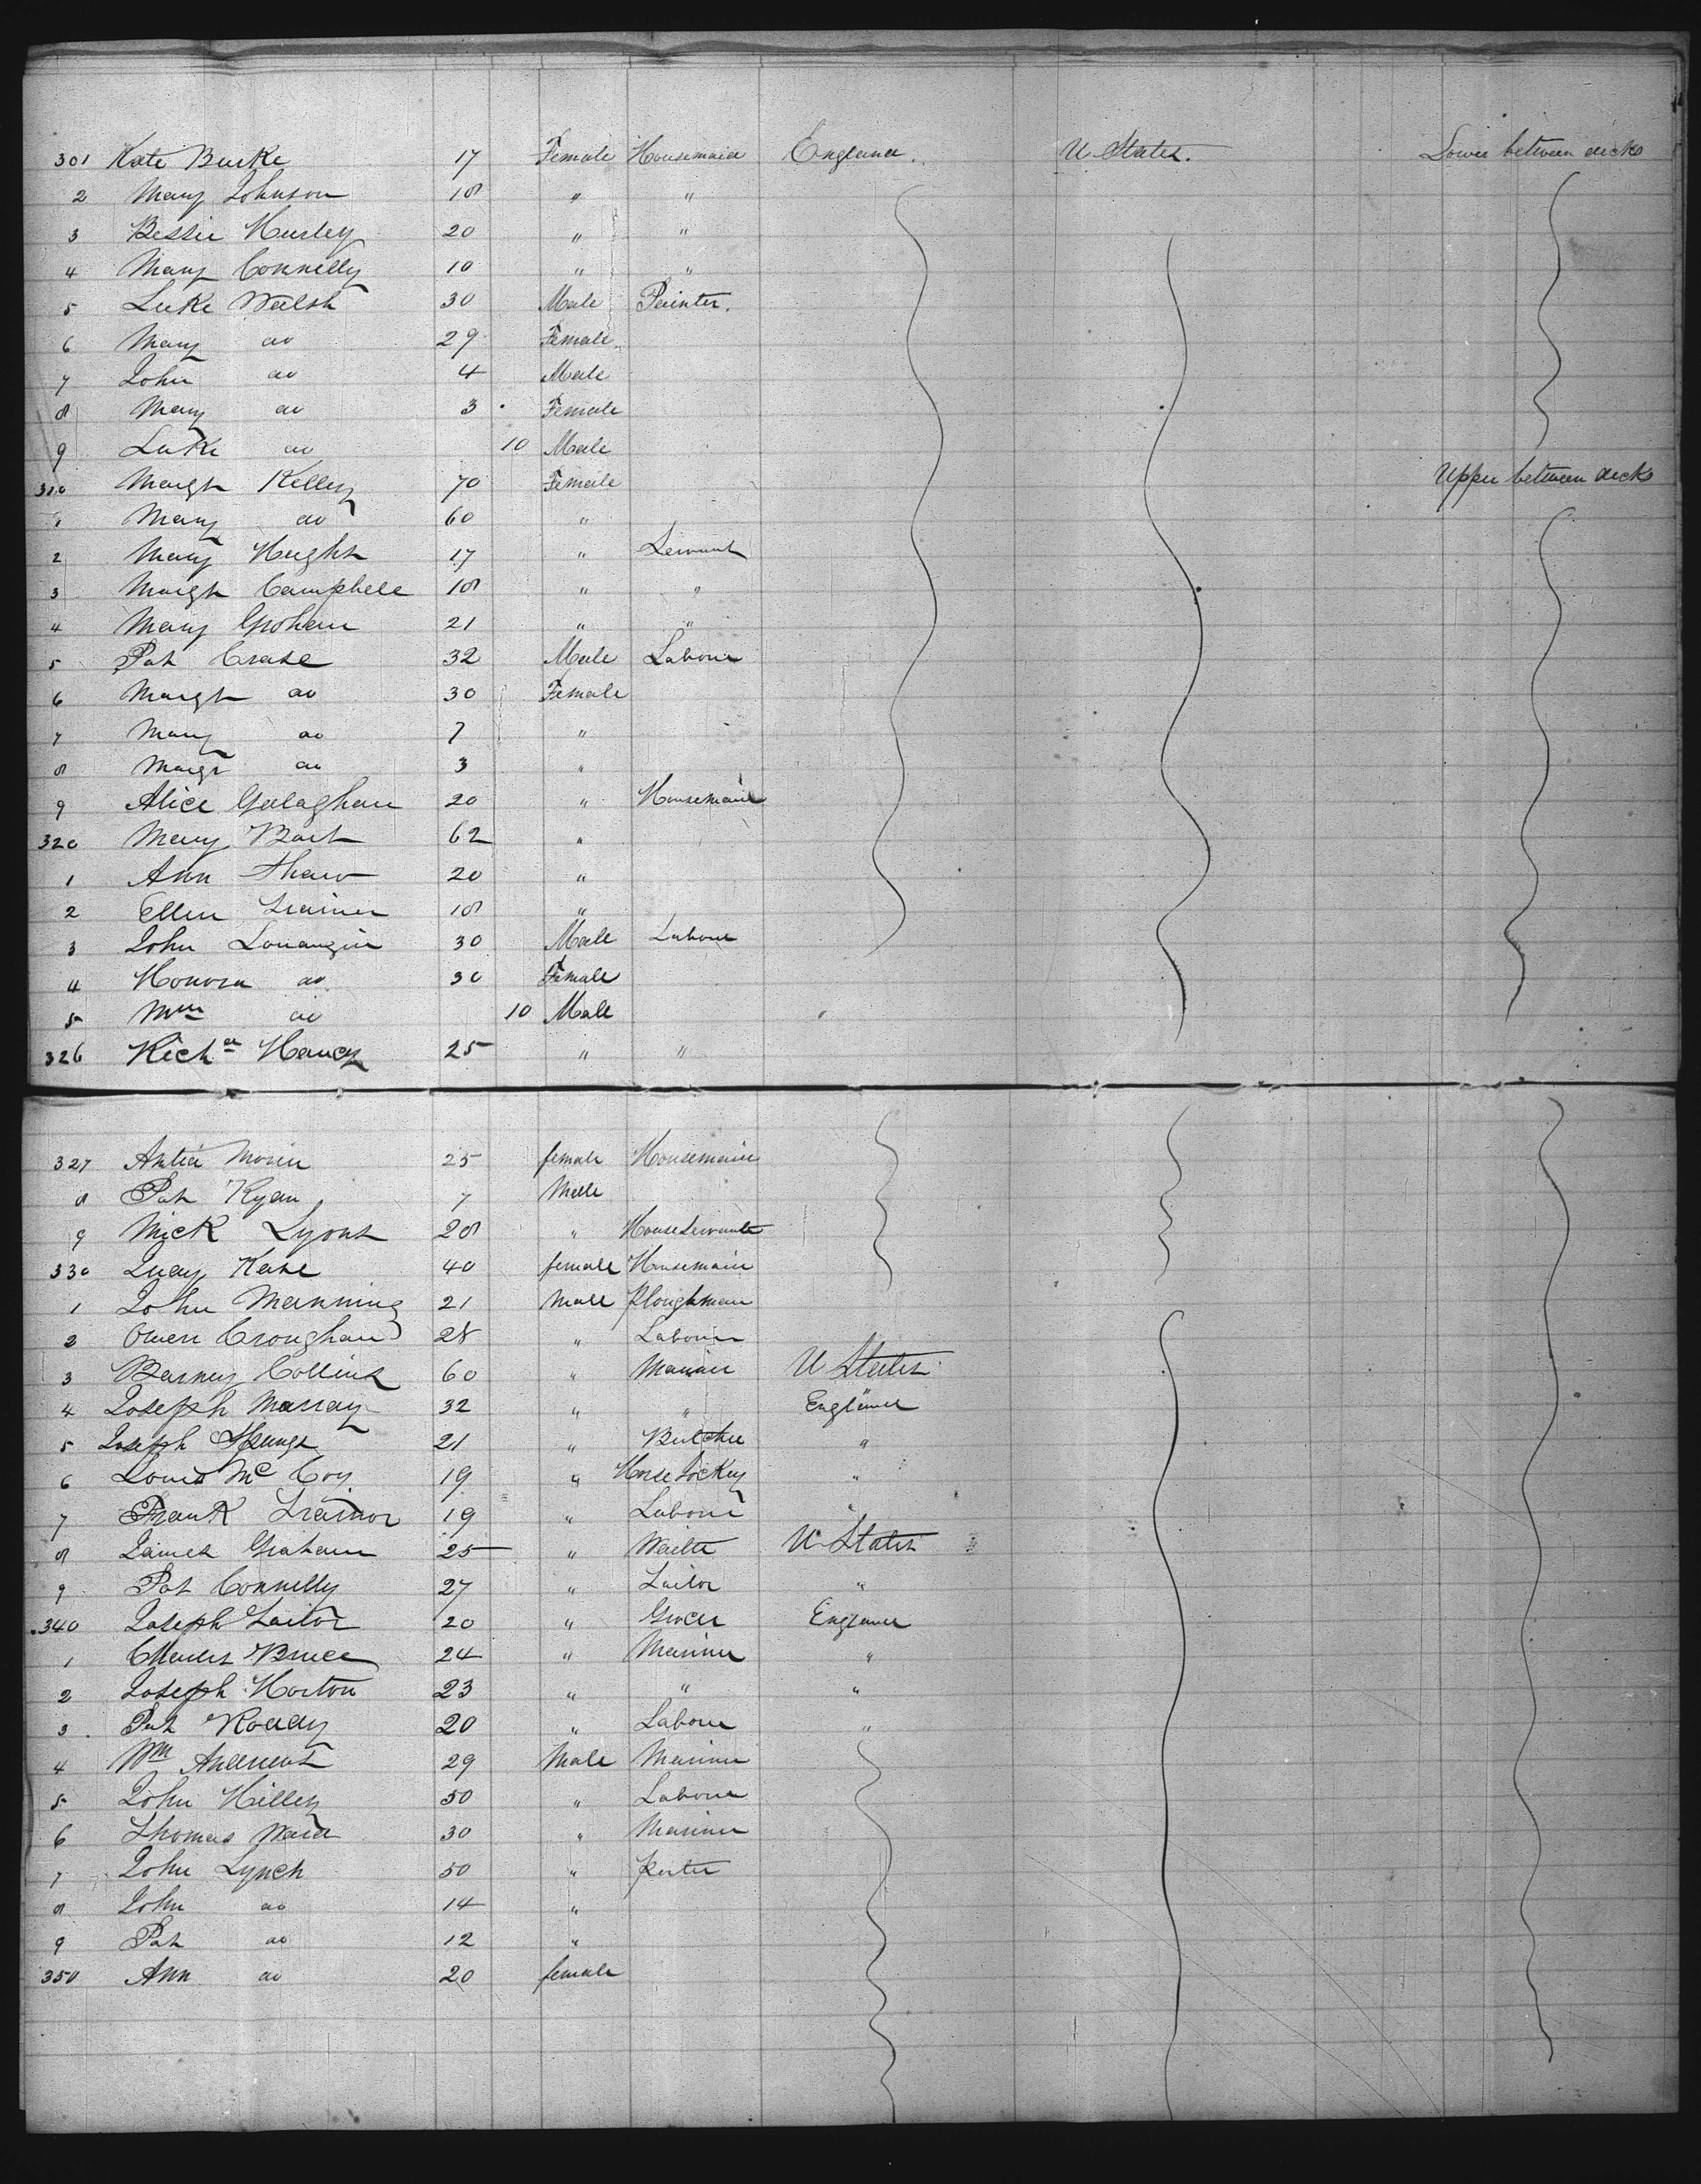 301 Kate Burke 17 Female Housemaid England. U. States. Lower between decks
2 Mary Johnson 18 " "
3 Bessie Hurley 20 " "
4 Mary Connelly 18 " "
5 Luke Walsh 30 Male Painter.
6 Mary do 29 Female
7 John do 4 Male
8 Mary do 3 Female
9 Luke do 10 Male
310 Margt Kelley 70 Female Upper between decks
1 Mary do 60 "
2 Mary Hughs 17 " Servant
3 Margt Campbell 18 " "
4 Mary Graham 21 " "
5 Pat 32 Male Labour
6 Margt do 30 Female
7 Mary do 7 "
8 Margt do 3 "
9 Alice Galaghan 20 " Housemaid
320 Mary 62 "
1 Ann Shaw 20 "
2 Ellen Trainer 18 "
3 John 30 Male Labour
4 Honora do 30 Female
5 Wm do 10 Male
326 Richd 25 " "
327 25 female Housemaid
8 Pat Ryan 7 Male
9 Mick Lyons 28 " House Servante
330 Kate 40 female Housemaid
1 John Manning 21 Male Ploughman
2 Owen Croughan 28 " Labour
3 Barney Collins 60 " U States
4 Joseph Murray 32 " " England
5 Joseph 21 " Butcher "
6 Louis McCoy 19 " Horse Jockey "
7 Frank Trainor 19 " Labour "
8 James Graham 25 " U States
9 Pat Connelly 27 " Tailor "
340 Joseph Tailor 20 " Grocer England
1 Charles Bruce 24 " Mariner "
2 Joseph Horton 23 " " "
3 Pat Roddy 20 " Labour "
4 Wm Andrews 29 Male Mariner
5 John Hilley 50 " Labour
6 Thomas Ward 30 " Mariner
7 John Lynch 50 " Porter
8 John do 14 "
9 Pat do 12 "
350 Ann do 20 female